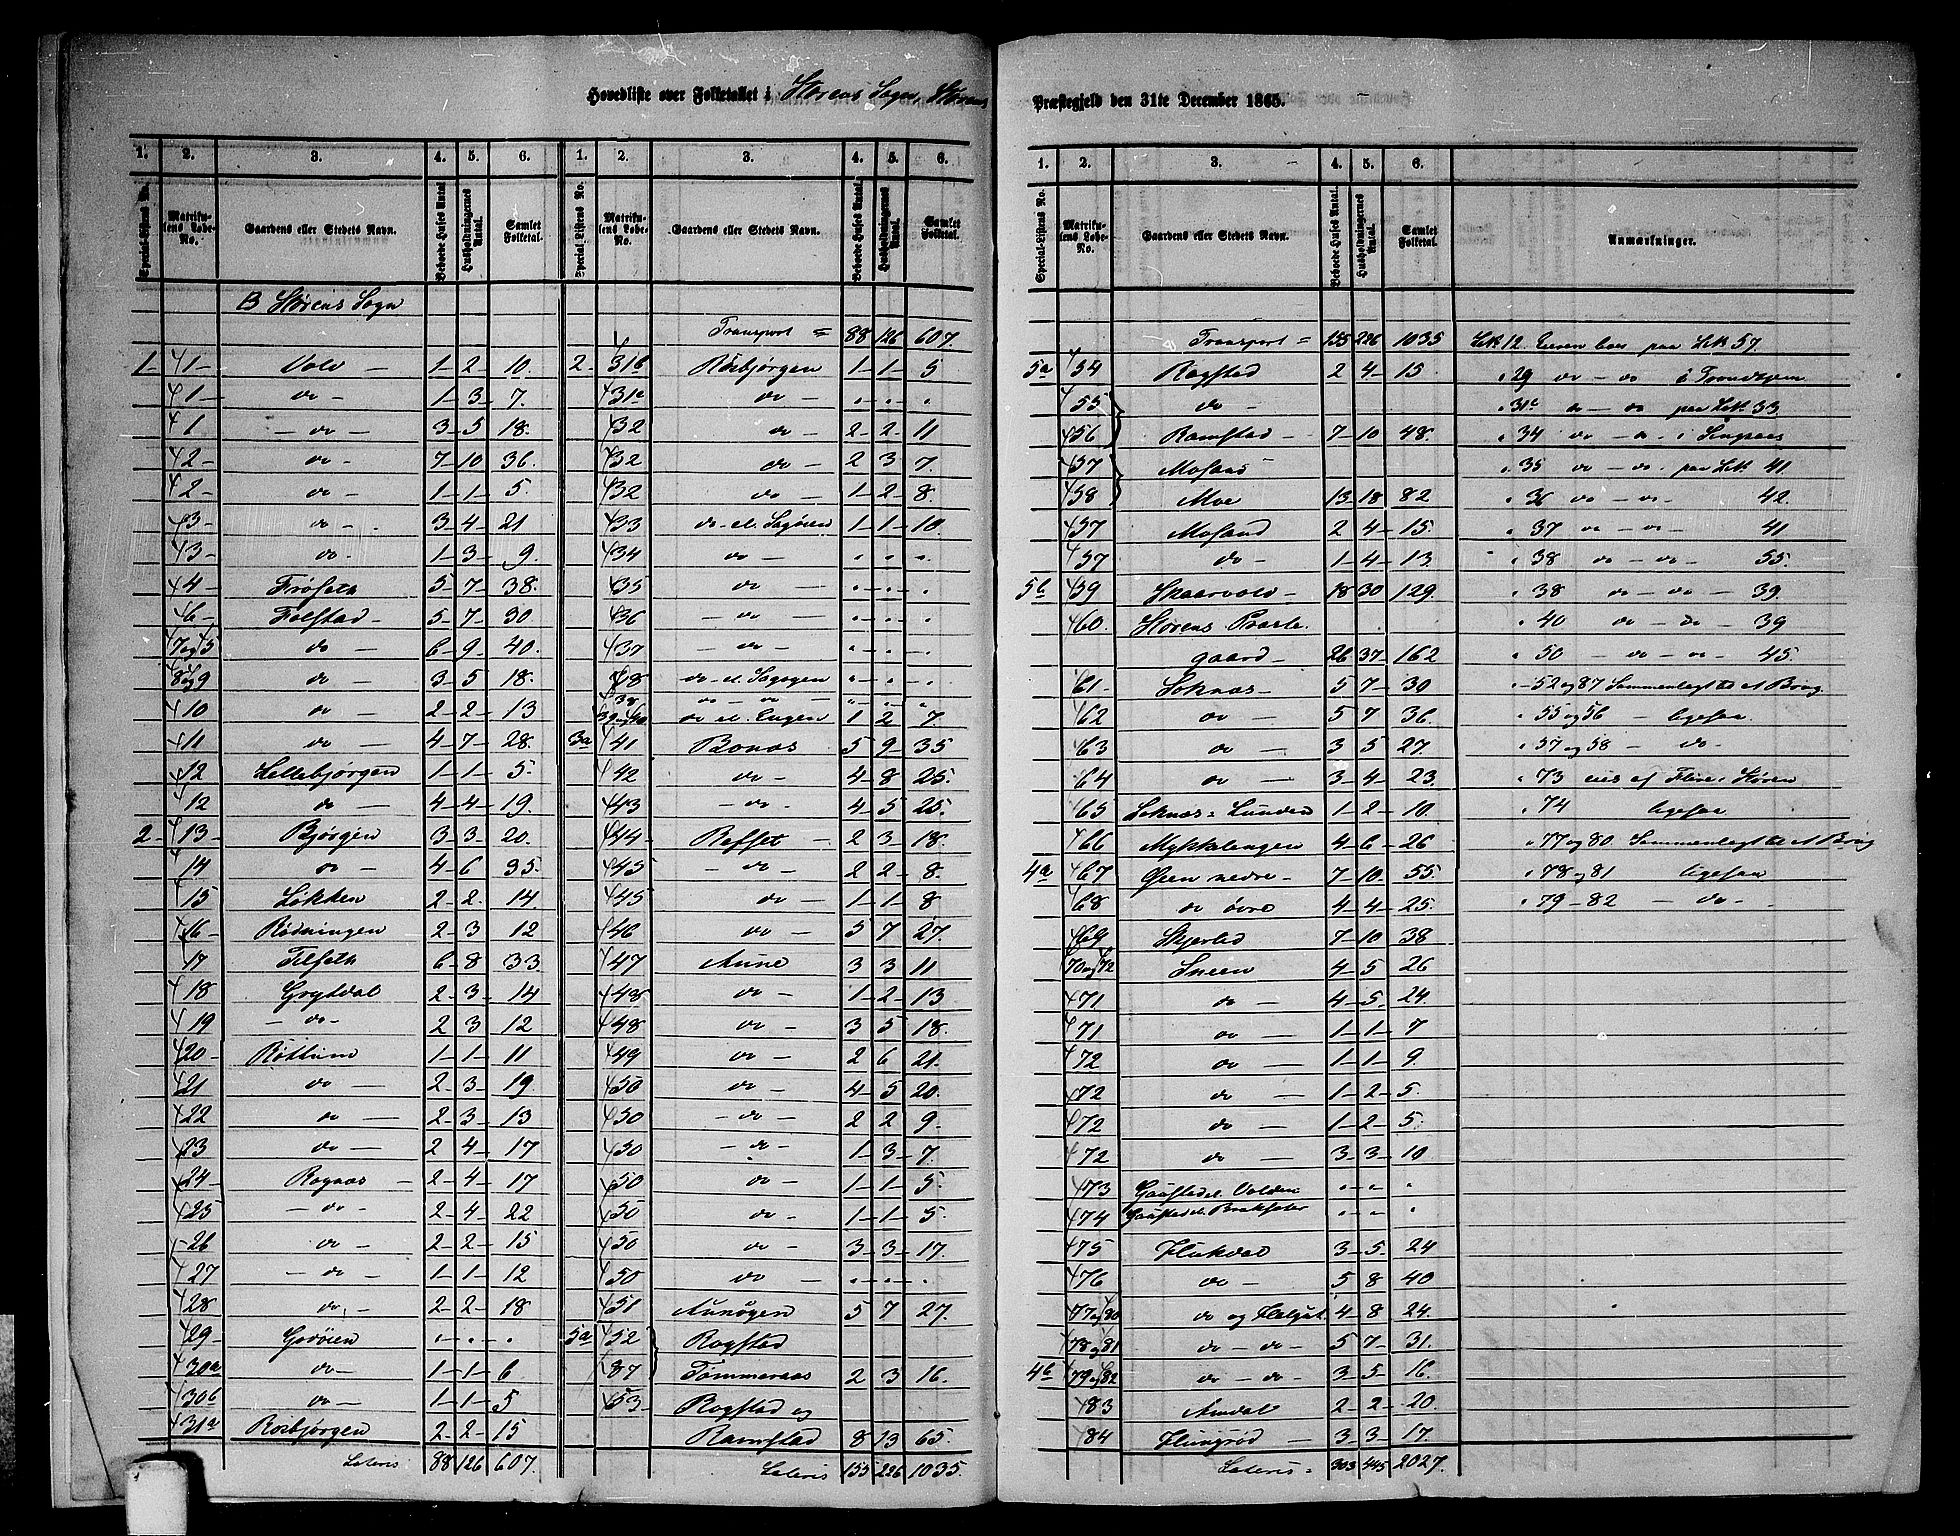 Hovedliste over Folketallet i Størens Sogn, Størens Præstegjeld den 31te December 1865.
1. 2. 3. 4. 5. 6. 1. 2. 3. 4. 5. 6.
Special-Listens No. Matrikulens Løbe-No. Gaardens eller Stedets Navn. Beboede Huses Antal Husholdningernes Antal. Samlet Folketal. Special-Listens No. Matrikulens Løbe-No. Gaardens eller Stedets Navn. Beboede Huses Antal. Husholdningernes Antal. Samlet Folketal.
B Størens Sogn
1 1 Vold 1 2 10.
1 do 1 3 7.
1 do 3 5 18.
2 do 7 10 36.
2 do 1 1 5.
3 do 3 4 21
3 do 1 3 9.
4 Frøseth 5 7 38.
6 Folstad 5 7 30
7 og 5 do 6 9 40.
8 og 9 do 3 5 18.
10 do 2 2 13
11 do 4 7 28.
12 Lillebjørgen 1 1 5.
12 do 4 4 19.
2 13 Bjørgen 3 3 20.
14 do 4 6 35.
15 Løkken 2 2 14.
16 Rødningen 2 3 12
17 Tilseth 6 8 33
18 Grytdal 2 3 14
19 do 2 3 12
20 Røttum 1 1 11
21 do 2 3 19.
22 do 2 3 13
23 do 2 4 17
24 Rognæs 2 4 17
25 do 2 4 22
26 do 2 2 15
27 do 1 1 12
28 do 2 2 18
29 Godøien . . .
30a do 1 1 6
30b do 1 1 5
31a Rosbjørgen 2 2 15
Lateris 88 126 607.
Transport = 88 126 607.
2 31b Rosbjørgen 1 1 5
31c do . . .
32 do 2 2 11
32 do 2 3 7.
32 do 1 2 8.
33 do el. Søgøien 1 1 10.
34 do . . .
35 do . . .
36 do . . .
37 do . . .
38 do el. Søgøgen . . .
39 do . . .
39 og 40 do el. Engen 1 2 7.
3a 41 Bonæs 5 9 35
42 do 4 8 25.
43 do 4 5 25.
44 Refset 2 3 18.
45 do 2 2 8.
45 do 1 1 8
46 do 5 7 27.
47 Aune 3 3 11
48 do 1 2 13
48 do 3 5 18.
49 do 2 6 21.
50 do 4 5 20.
50 do 2 2 9.
50 do 1 3 7
50 do 1 1 5.
50 do 1 1 5.
50 do 3 3 17.
50 do . . .
51 Aunøgen 5 7 27.
5a 52 Rogstad
87 Tømmeraas 2 3 16.
53 Rogstad og
Ramstad 8 13 65.
Lateris 155 226 1035.
1. 2. 3. 4. 5. 6.
Special-Listens No. Matrikulens Løbe-No. Gaardens eller Stedets Navn. Beboede Huses Antal. Husholdningernes Antal. Samlet Folketal. Anmærkninger.
Transport = 155 226 1035 Lb 12 Eieren boer paa Lb 57.
5a 54 Rogstad 2 4 15. " 29 do do i Trondhjem
55 do " 31c do do paa Lb. 33
56 Ramstad 7 10 48. " 34 do do i Singsaas
57 Mosand " 35 do do paa Lb 41
58 Moe 13 18 82 " 36 do do 42.
57 Mosand 2 4 15. " 37 do do 41
57 do 1 4 13. " 38 do do 55.
5b 59 Skaarvold 18 30 129. " 38 do do 39.
60. Størens Præste- " 40 do do 39
gaard 26 37 162 " 50 do do 45.
61 Soknæs 5 7 30 " 52 og 87 Sammenlagt til et Brug
62 do 5 7 36. " 55 og 56 ligesaa
63 do 3 5 27. " 57 og 58 do
64 do 3 4 23. " 73 eies af Flere i Støren
65 Soknæs Lunden 1 2 10. " 74 ligesaa
66 Mykklengen 4 6 26 " 77 og 80 Sammenlagt til et Brug
4a 67 Øien nedre 7 10 55 " 78 og 81 ligesaa
68 do øvre 4 4 25. " 79 82 do
69 Skjerlid 7 10 38
70 og 72 Sneen 4 5 26
71 do 4 5 24.
71 do 1 1 7
72 do 1 1 9.
72 do 1 2 5.
72 do 1 2 5.
72 do 3 3 10
73 . . .
74 . . .
75 Hukdal 3 5 24
76 do 5 8 40
77 og 80 do og 4 8 24.
78 og 81 do do 5 7 31.
4b 79 og 82 do do 3 5 16.
83 Amdal 2 2 20.
84 3 3 17.
Lateris 303 445 2027.